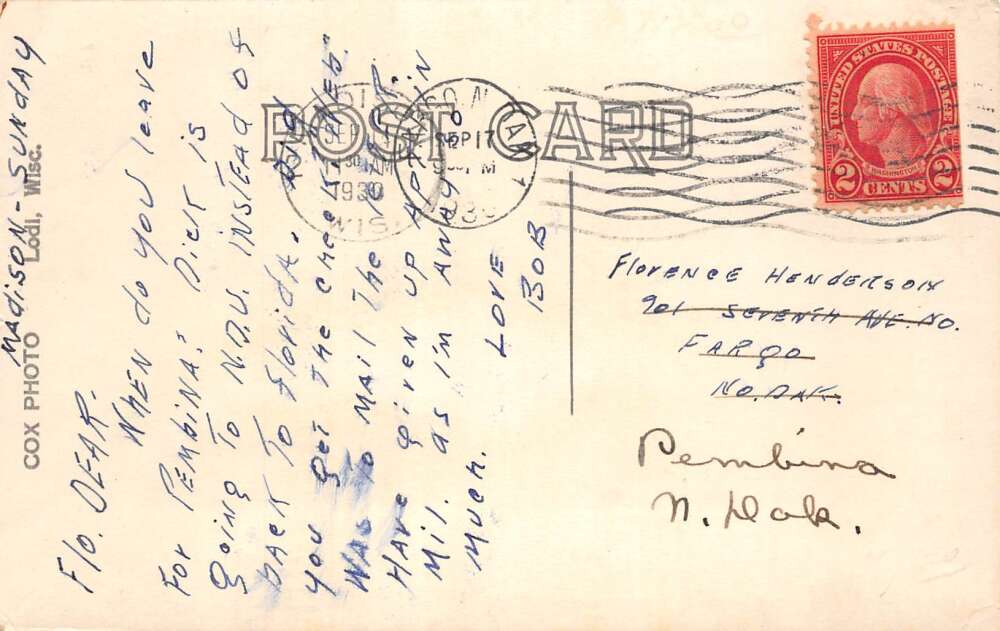 MADISON - SUNDAY
Flo. DEAR.
WHEN do you leave
For PEMBINA? Dick is
going To N.D.U. INSTEAD OF
back To Florida. Did
you get The check?
WAS to MAIL The
HAVE given up APT. IN
Mil. as I'm AWAY so
MUCH.
LOVE
BOB
COX PHOTO Lodi, Wisc.
POST CARD
SEP
1930
WIS.
SEP 17
UNITED STATES POSTAGE
WASHINGTON
2 CENTS 2
Florence Henderson
901 SEVENTH AVE. NO.
FARGO
NO. DAK.
Pembina
N. Dak.